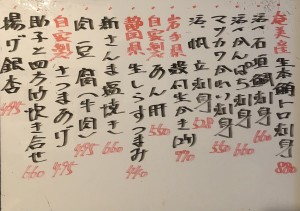 奄美産 生本鮪トロ刺身 880
活〆石鯛刺身 660
活〆かんぱち刺身 660
マツカワかれい刺身 660
活〆帆立刺身 528
岩手県 殻付生かき(2ケ) 770
自家製 あん肝 550
静岡県 生しらすつまみ 440
新さんま塩焼き 660
肉豆腐(牛肉) 495
自家製 さつまあげ 495
助子と四方竹炊き合せ 660
揚げ銀杏 495